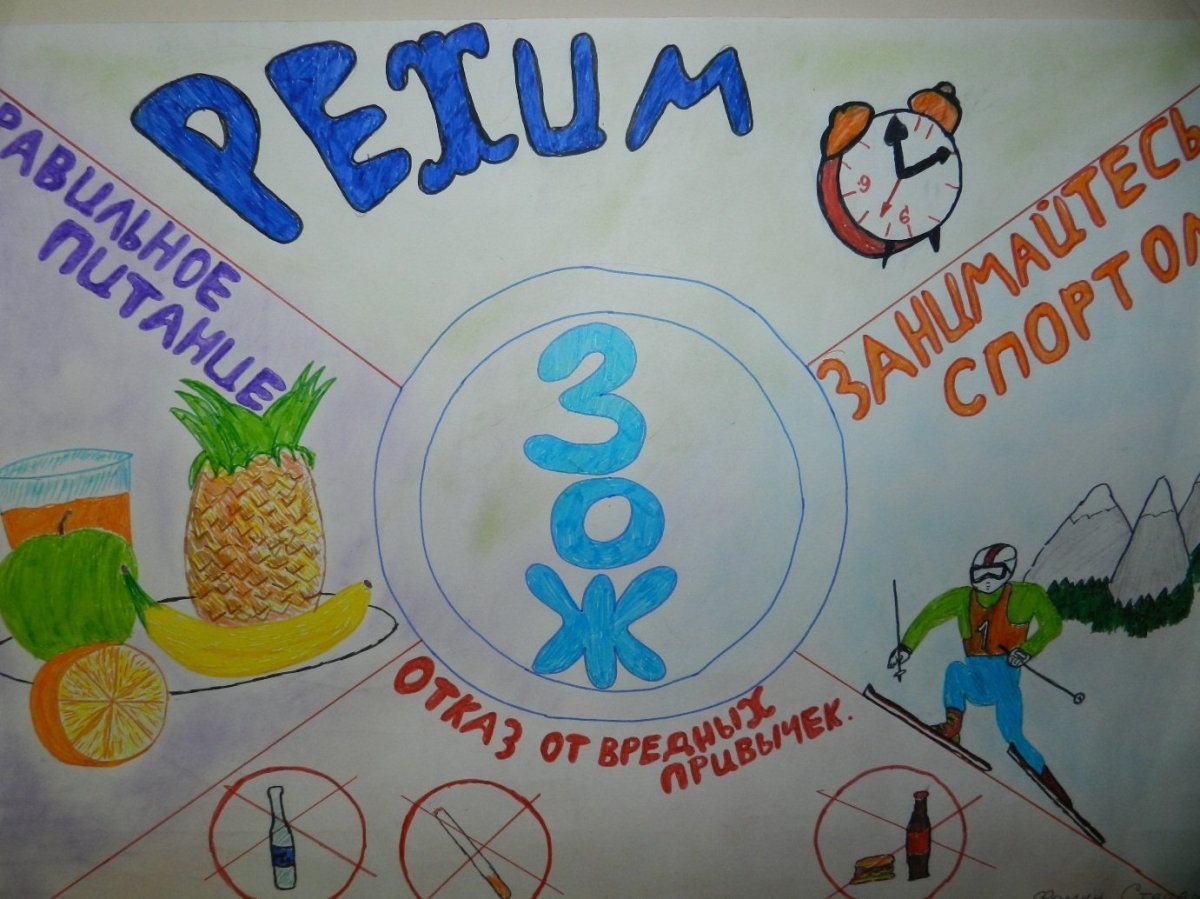 РЕЖИМ
РАВИЛЬНОЕ
ПИТАНИЕ
9
6
ЗАНИМАЙТЕСЬ
СПОРТОМ
З
О
Ж
1
ОТКАЗ ОТ ВРЕДНЫХ
ПРИВЫЧЕК.